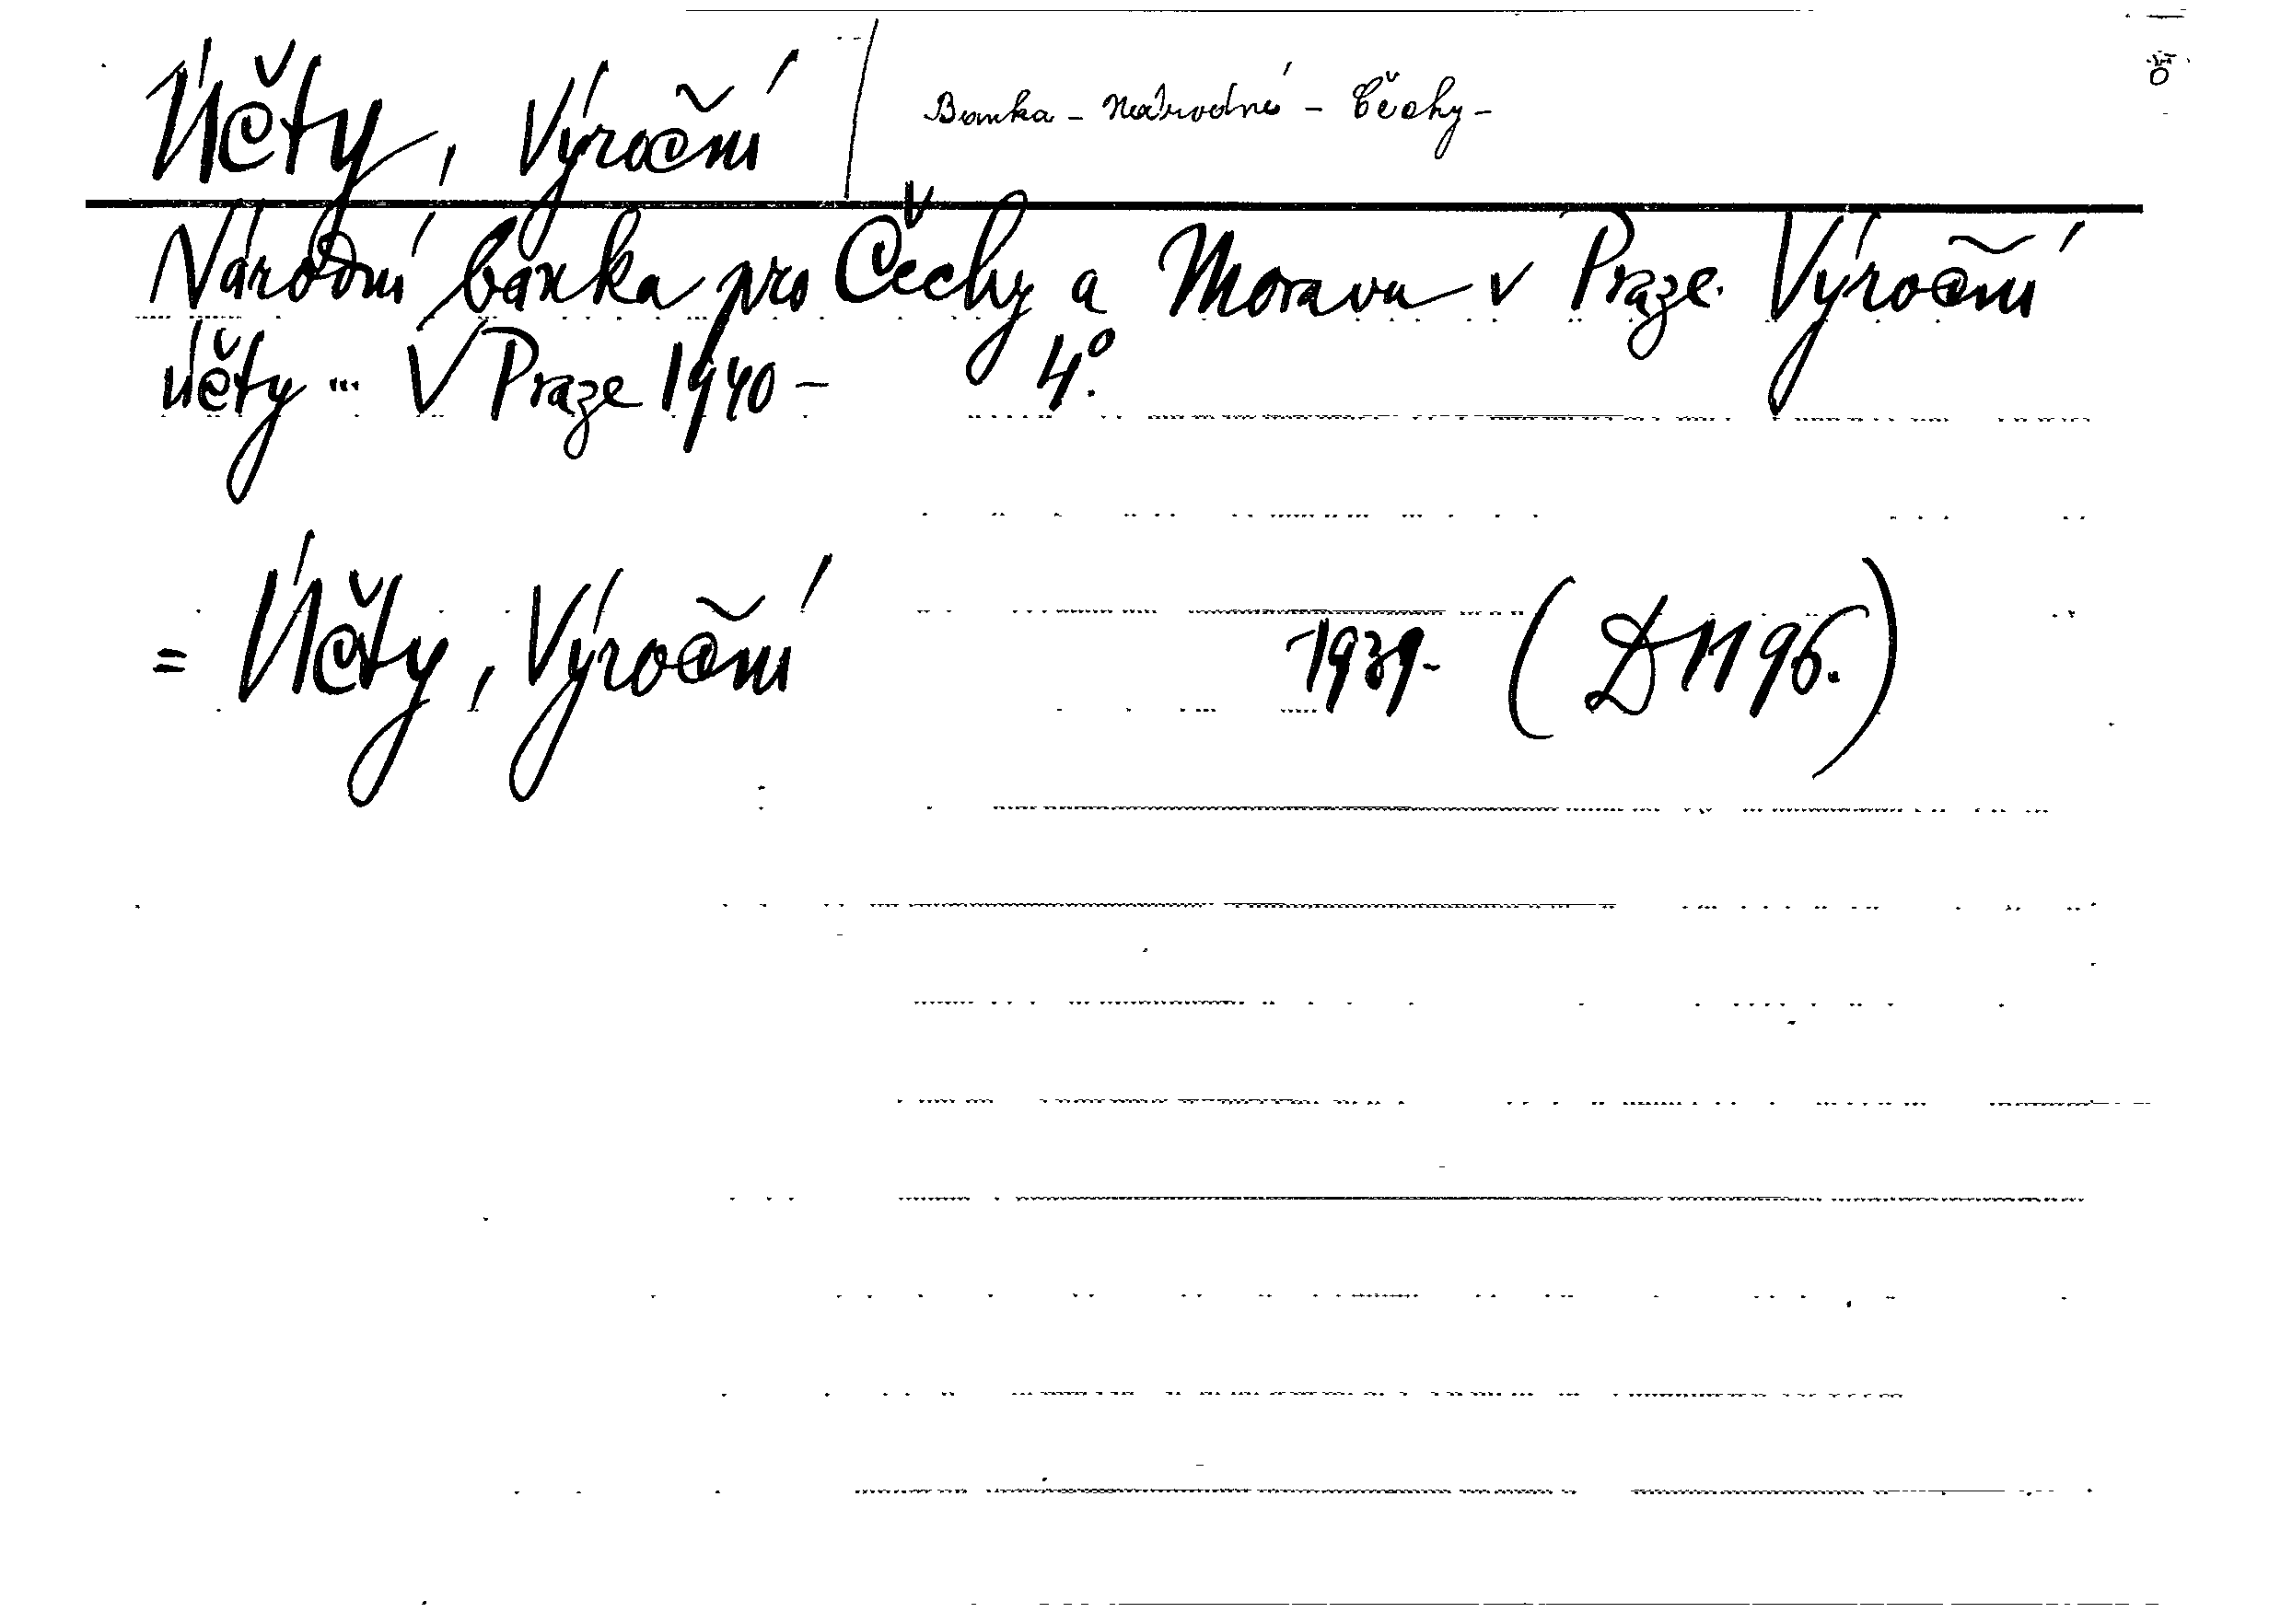 Účty, Výroční / Banka - Národní - Čechy -
Národní banka pro Čechy a Moravu v Praze. Výroční
účty ... V Praze 1940 - 4°.
= Účty, Výroční 1939- (D 1196.)